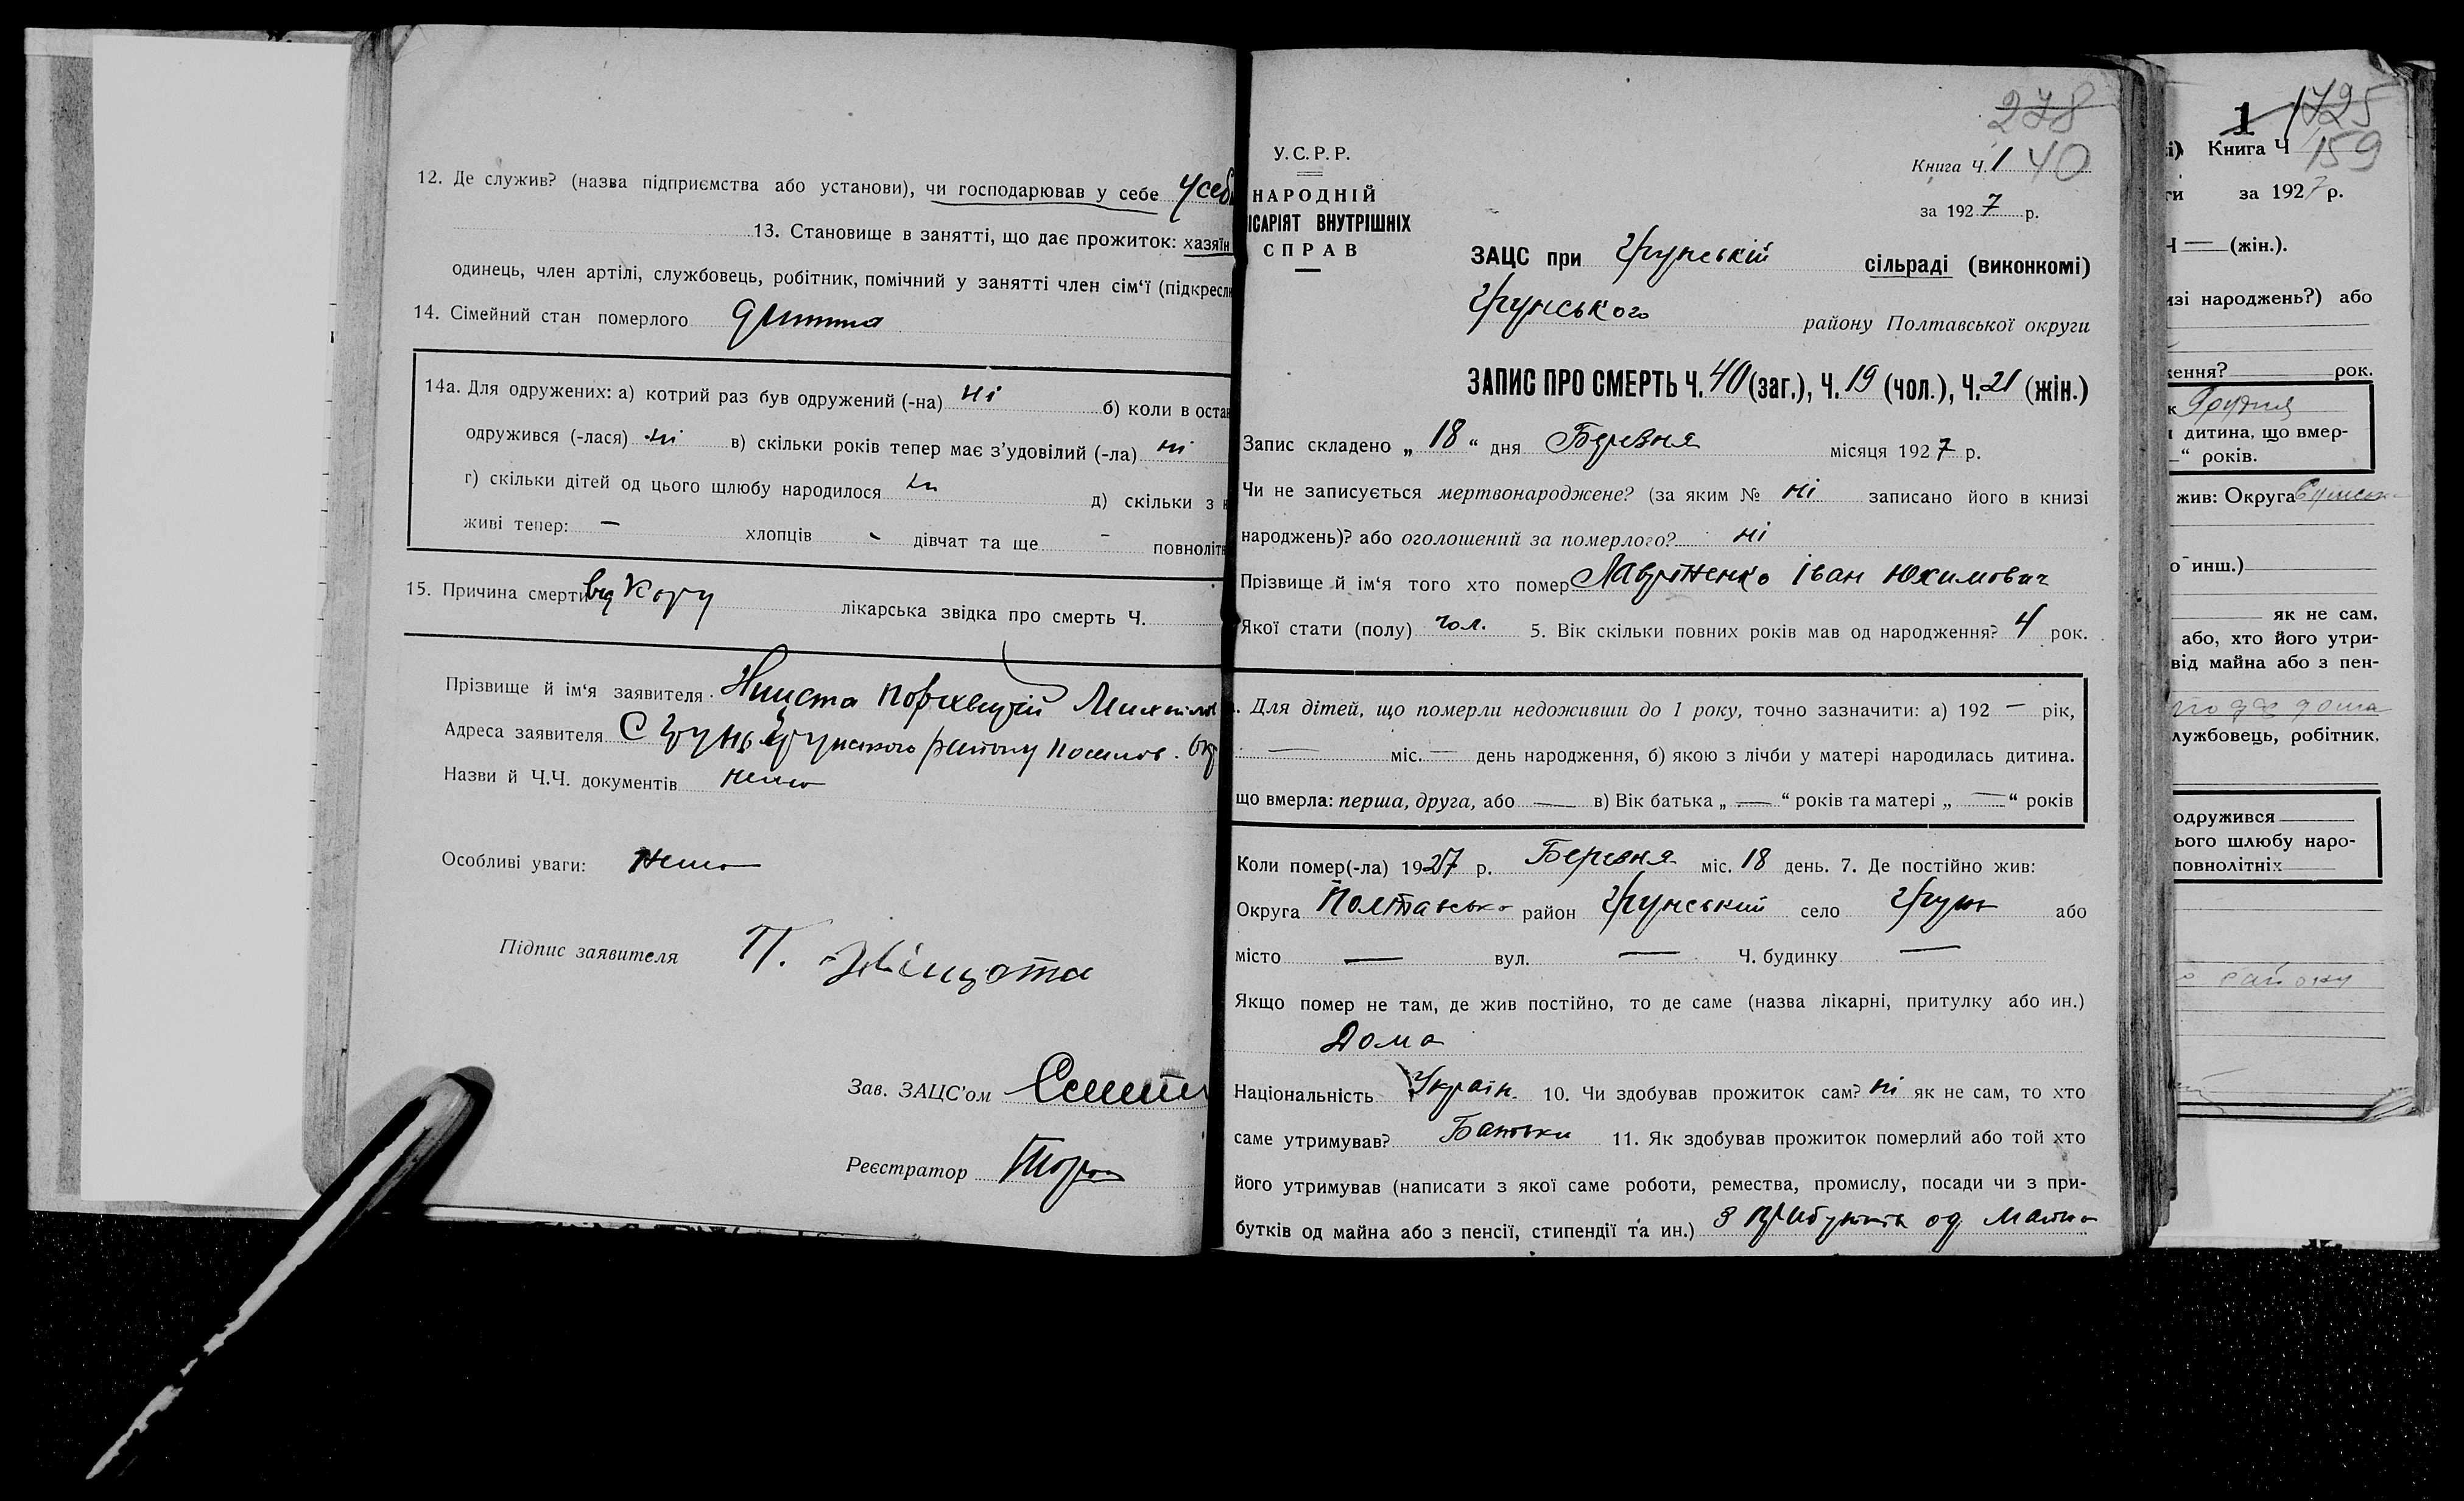 12. Де служив? (назва підприємства або установи), чи господарював у себе усеб
13. Становище в занятті, що дає прожиток: хазяїн
одинець, член артілі, службовець, робітник, помічний у занятті член сім'ї (підкресл
14. Сімейний стан померлого
14а. Для одружених: а) котрий раз був одружений (-на) ні б) коли в оста
одружився (-лася) ні в) скільки років тепер має з'удовілий (-ла) ні
г) скільки дітей од цього шлюбу народилося ні д) скільки з
живі тепер: — хлопців - дівчат та ще - повноліт
15. Причина смерти від Кору лікарська звідка про смерть Ч.
Прізвище й ім'я заявителя
Адреса заявителя С Грунь Грунського району Округ
Назви й Ч.Ч. документів нема
Особливі уваги: нема
Підпис заявителя П.
Зав. ЗАЦС'ом
Реєстратор
278
У.С.Р.Р.
Книга Ч. 1 40
НАРОДНІЙ
ІСАРІЯТ ВНУТРІШНІХ
СПРАВ
за 1927 р.
ЗАЦС при Грунській сільраді (виконкомі)
Грунського району Полтавської округи
ЗАПИС ПРО СМЕРТЬ Ч. 40 (заг.), Ч. 19 (чол.), Ч. 21 (жін.)
Запис складено „ 18 “ дня Березня місяця 1927 р.
Чи не записується мертвонароджене? (за яким № ні записано його в книзі
народжень)? або оголошений за померлого? ні
Прізвище й ім'я того хто помер Іван Юхимович
Якої стати (полу) чол. 5. Вік скільки повних років мав од народження? 4 рок.
. Для дітей, що померли недоживши до 1 року, точно зазначити: а) 192 — рік,
— міс. — день народження, б) якою з лічби у матері народилась дитина.
що вмерла: перша, друга, або — в) Вік батька „ — “ років та матері „ — “ років
Коли помер(-ла) 1927 р. Березня міс. 18 день. 7. Де постійно жив:
Округа Полтавсько район Грунський село Грунь або
місто — вул. — Ч. будинку —
Якщо помер не там, де жив постійно, то де саме (назва лікарні, притулку або ин.)
Дома
Національність Україн. 10. Чи здобував прожиток сам? ні як не сам, то хто
саме утримував? Батьки 11. Як здобував прожиток померлий або той хто
його утримував (написати з якої саме роботи, ремества, промислу, посади чи з при-
бутків од майна або з пенсії, стипендії та ин.) З прибутків од майна
1 1725
і) Книга Ч 159
ти за 1927 р.
Ч — (жін.).
изі народжень?) або
ження? рок.
к Грудня
дитина, що вмер-
—“ років.
жив: Округа
о инш.)
як не сам,
або, хто його утри-
від майна або з пен-
лужбовець, робітник,
одружився
ього шлюбу наро-
повнолітніх
району